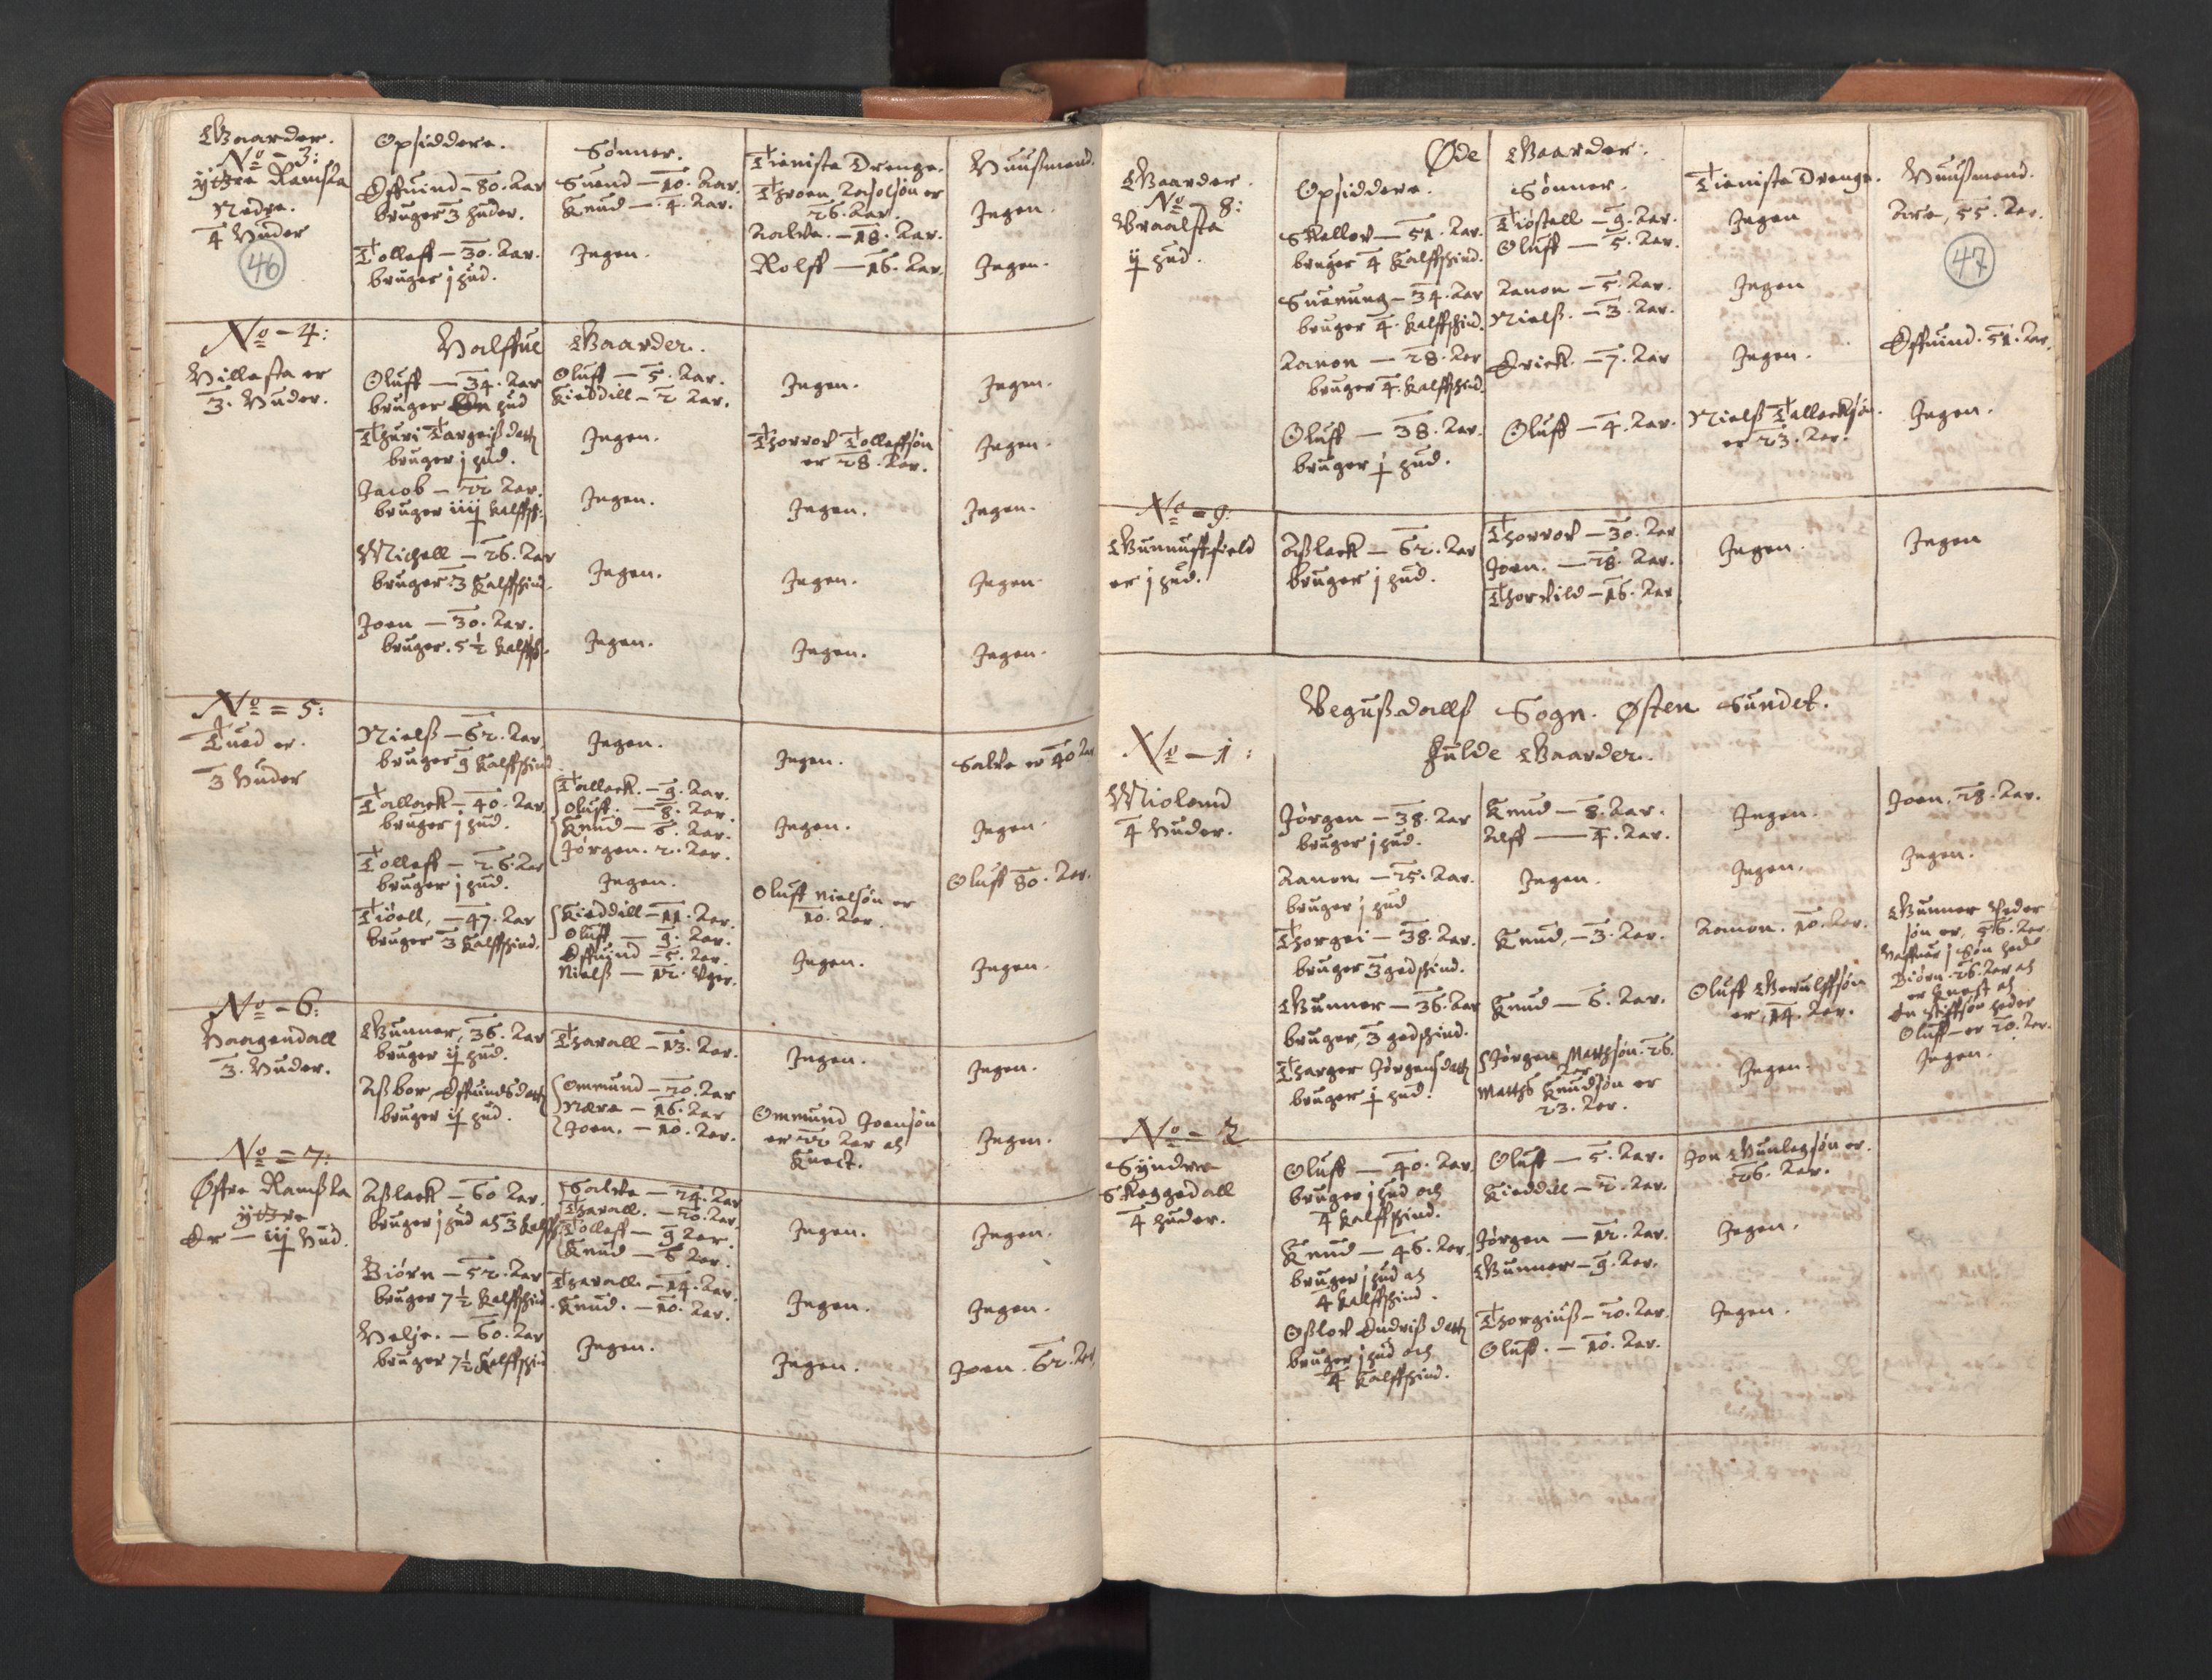 Gaarder.
No - 3:
ÿttre Ramsla
Nedre.
4 Huder
46
Opsiddere.
Øffuind - 80. Aar
bruger 3 huder.
Tolleff - 30. Aar.
bruger j hud.
Sønner.
Suend - 10. Aar.
Knud - 4. Aar.
Ingen.
Tieniste Drenge.
Throen Aasolsøn er
26. Aar.
Aalke. - 18. Aar.
Rolff - 16. Aar.
Huusmend.
Ingen.
Ingen.
No - 4:
Halffue Gaarder.
Hillesta er
3. Huder.
Oluff - 34. Aar
bruger hud
Thuri Targeis datt
bruger j hud.
Jacob - 22 Aar.
bruger iiij kalffsk:
Michell - 26. Aar
bruger 3 kalffskind.
Joen - 30. Aar.
bruger. 5½ kalffsk.
Oluff - 5. Aar.
Kieddill - 2 Aar.
Ingen.
Ingen.
Ingen.
Ingen.
Ingen.
Thorrod Tolleffsøn
er 28. Aar.
Ingen.
Ingen.
Ingen.
Ingen.
Ingen.
Ingen.
Ingen.
Ingen.
No = 5:
Tued er.
3 Huder
Nielß - 62. Aar.
bruger 9 kalffskind
Tallack - 40. Aar.
bruger j hud.
Tolleff - 26. Aar
bruger j hud.
Tiøell, - 47. Aar
bruger 3 kalffskind.
Ingen.
Tallack. - 9. Aar.
Oluff. - 8. Aar.
Knud - 6. Aar.
Jørgen. 2. Aar.
Ingen.
Kieddill - 11. Aar.
Oluff - 9. Aar.
Øffuind - 5. Aar.
Nielß - 12. Uger.
Ingen.
Ingen.
Oluff Nielsøn er
20. Aar.
Ingen.
Salue er 40 Aar
Ingen
Oluff 80. Aar.
Ingen.
No - 6:
Haagendall
3. Huder.
Gunner, 36. Aar
bruger ij hud.
Aßbor Øffuindsdatt
bruger ij hud.
Tharall - 13. Aar.
Ommund - 20. Aar
Nære - 16. Aar
Joen. - 10. Aar.
Ingen.
Ommund Joensøn
er 22 Aar och
Knect.
Ingen.
Ingen.
No = 7:
Øffre Ramßla
ÿttre
Er - iij Hud.
Aßlack - 60 Aar.
bruger j hud och 3 kalff
Biørn - 52. Aar
bruger 7½ kalffskind.
Helje. - 60. Aar
bruger 7½ kalffskin
Salue - 24. Aar
Tharall. - 20. Aar.
Tolleff - 9 Aar.
Knud - 6 Aar.
Tharall. - 14. Aar.
Knud. - 10. Aar.
Ingen.
Ingen.
Ingen.
Ingen.
Ingen.
Ingen.
Joen. 62. Aar
Øde Gaarder.
Gaarder.
No - 8:
Braalsta
ij hud.
Opsiddere.
Skallod - 51. Aar.
bruger 4 kalffskind.
Suenung - 34. Aar
bruger 4. kalffskind.
Aanon - 28. Aar
bruger 4. kalffskind.
Oluff - 38. Aar.
bruger j hud.
Sønner.
Tiøstall - 9. Aar.
Oluff - 5. Aar.
Aanon - 5. Aar.
Nielß. - 3. Aar.
Erick. - 7. Aar
Oluff - 4. Aar.
Tieniste Drenge.
Ingen
Ingen
Ingen.
Nielß Tallacksøn.
er 23. Aar.
Huusmend.
Are, 55. Aar.
47
Øffuind. 51. Aar.
Ingen.
No = 9:
Gunnuffsfield
er j hud.
Aßlack - 62. Aar
bruger j hud.
Thorrod - 30. Aar
Joen. - 28. Aar.
Thorkild - 16. Aar
Ingen.
Ingen
Hegußdallß Sogn. Østen Sundet.
Fulde Gaarder.
No - 1:
Mioland
4 Huder.
Jørgen - 38. Aar
bruger j hud.
Aanon. - 25. Aar.
bruger j hud
Thorgei - 38. Aar.
bruger 3 gedskind.
Gunner - 36. Aar
bruger, 3 gedskind.
Tharger Jørgensdatt
bruger j hud.
Knud - 8. Aar.
Alff - 4. Aar.
Ingen.
Knud, - 3. Aar.
Knud - 6. Aar.
Jørgen Matthsøn. 26.
Aar
Matths Knudsøn er
23. Aar.
Ingen.
Ingen.
Aanon. 20. Aar.
Oluff Gerulffsøn
er, 14. Aar.
Ingen.
Joen. 28. Aar.
Ingen.
Gunner Peder
søn er, 56. Aar
Haffuer j Søn heder
Biørn. 26. Aar och
er Knect och
En Stiffsøn heder
Oluff - er 20. Aar.
Ingen.
No - 2
Syndre
Skeggedall
4 huder.
Oluff - 40. Aar.
bruger j hud och
4 kalffskind.
Knud - 46. Aar.
bruger j hud och
4 kalffskind.
Oßlod Endriß datt
bruger j hud och
4 kalffskind.
Oluff - 5. Aar.
Kieddill - 2. Aar.
Jørgen - 12. Aar.
Gunner - 9. Aar.
Thorgiuß - 20. Aar.
Oluff. - 10. Aar.
Jon Gunlegsøn er.
26. Aar.
Ingen.
Ingen.